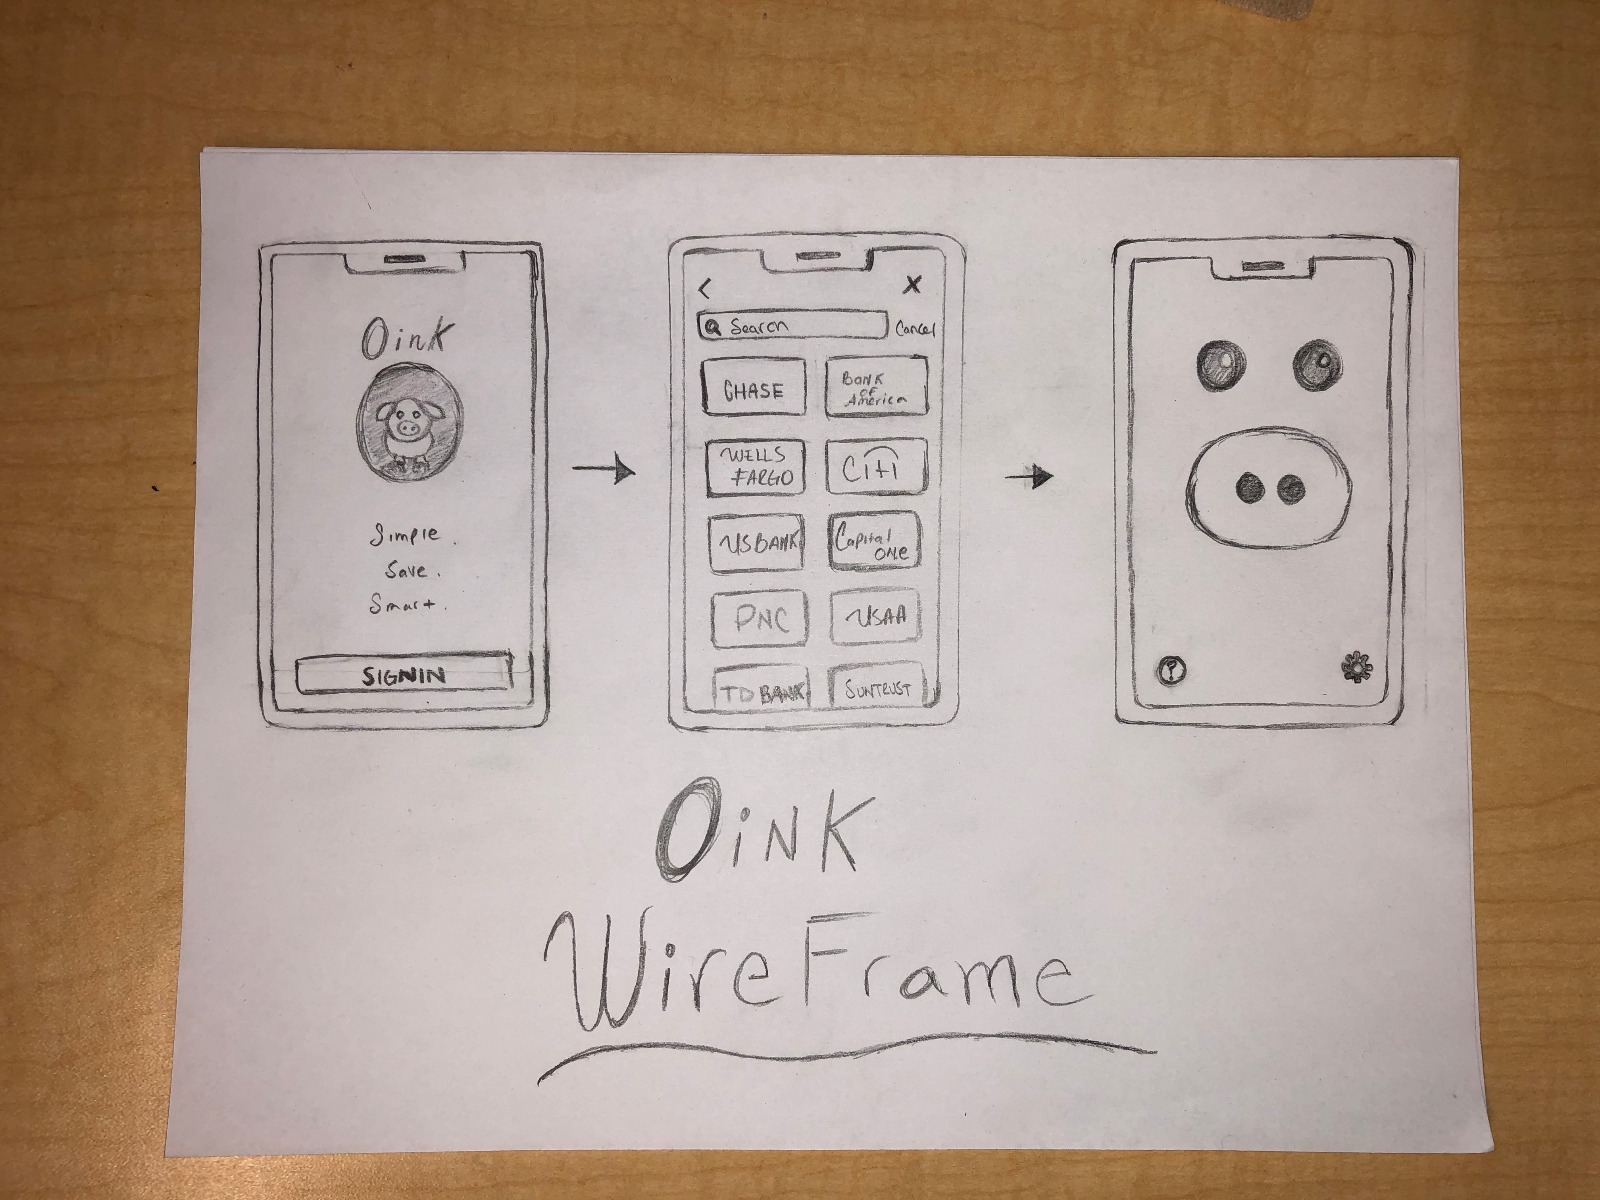 Oink
Simple.
Save.
Smart.
SIGNIN
< X
Search Cancel
CHASE
BANK
OF
America
WELLS
FARGO
Citi
US BANK
Capital
ONE
PNC
USAA
TD BANK
SUNTRUST
?
OiNK
WireFrame